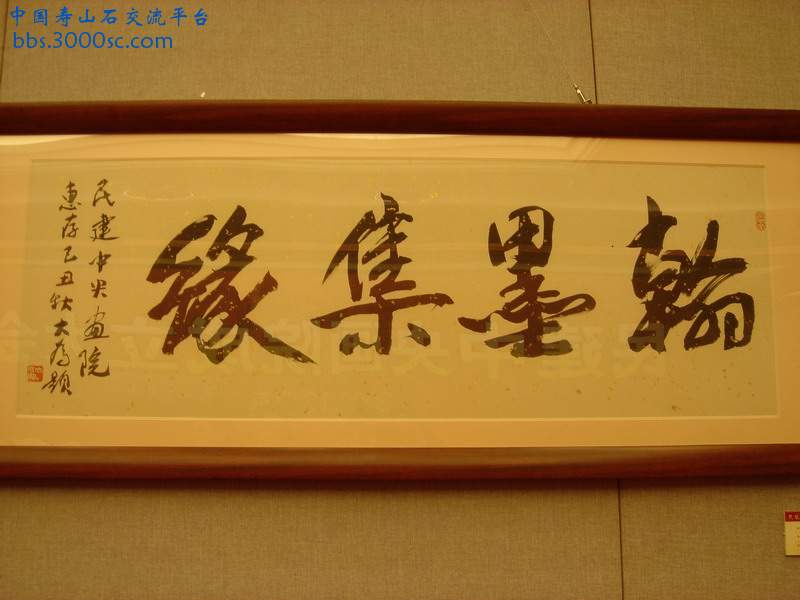 中国寿山石交流平台
bbs.3000sc.com
翰墨集缘
民建中央画院
惠存己丑秋大为题